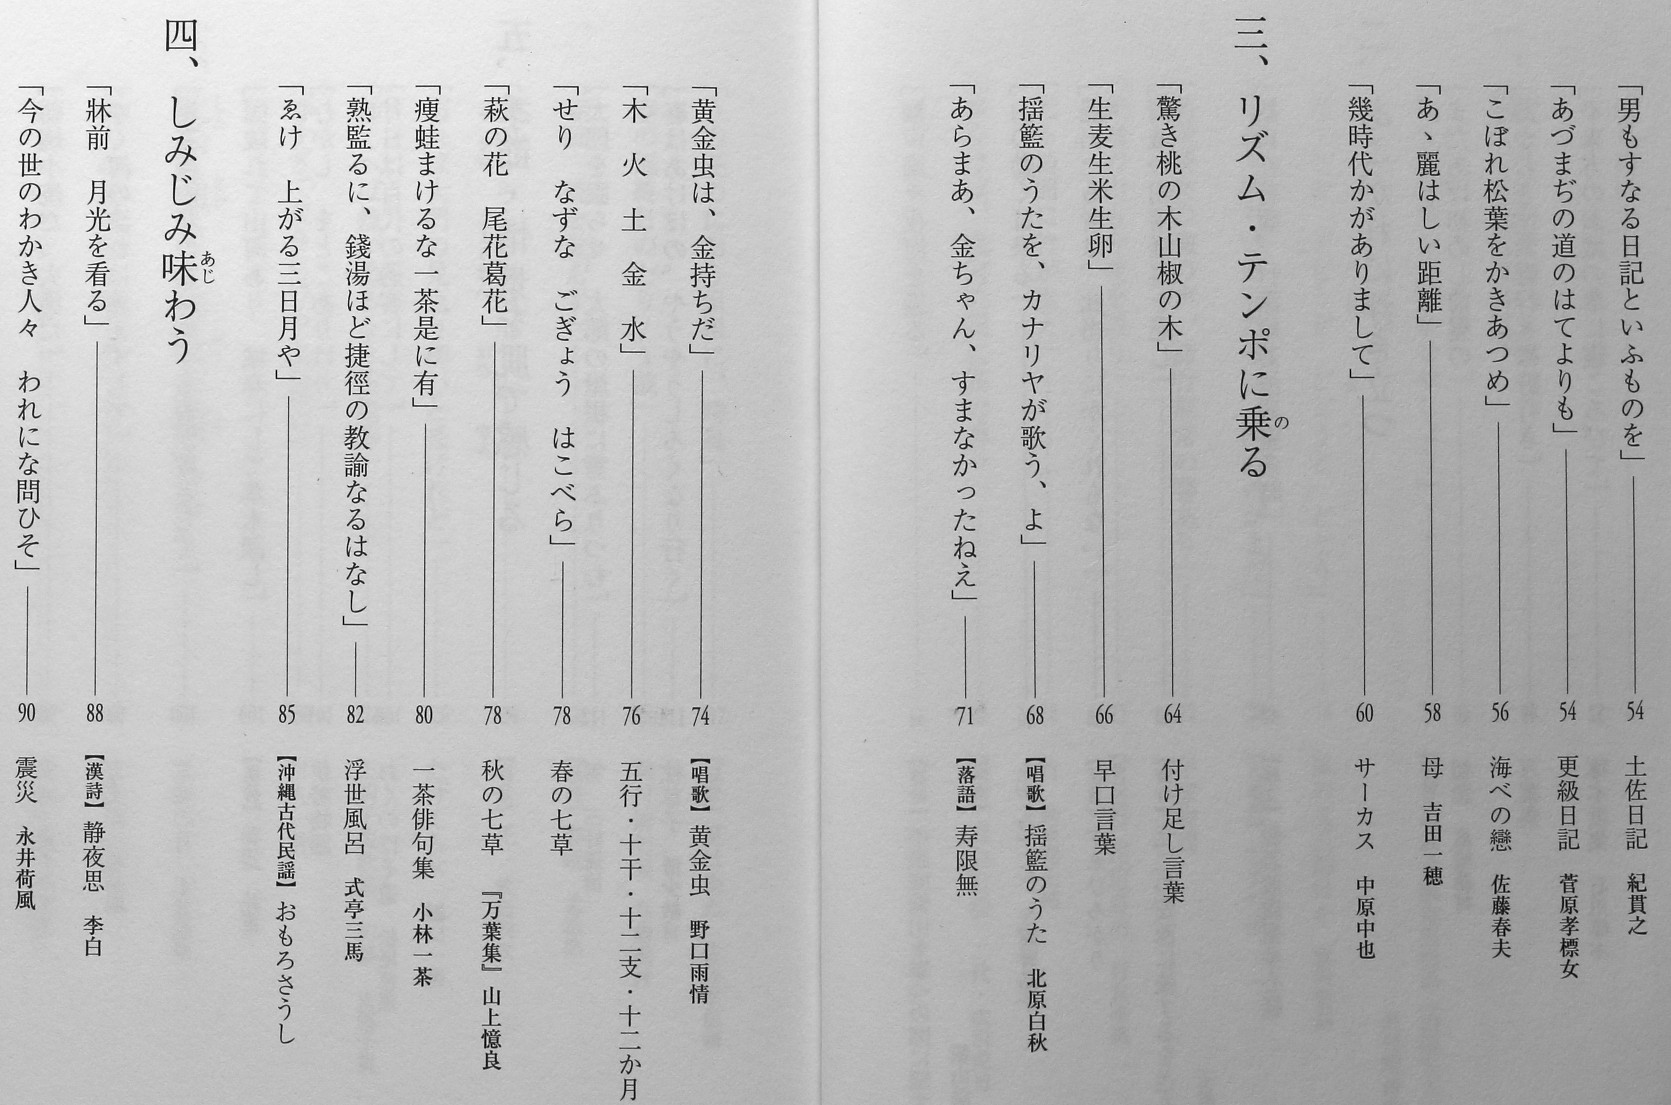 「男もすなる日記といふものを」 54 土佐日記 紀貫之
「あづまぢの道のはてよりも」 54 更級日記 菅原孝標女
「こぼれ松葉をかきあつめ」 56 海べの戀 佐藤春夫
「あゝ麗はしい距離」 58 母 吉田一穂
「幾時代かがありまして」 60 サーカス 中原中也
三、リズム・テンポに乗る
の
「驚き桃の木山椒の木」 64 付け足し言葉
「生麦生米生卵」 66 早口言葉
「揺籃のうたを、カナリヤが歌う、よ」 68 【唱歌】揺籃のうた 北原白秋
「あらまあ、金ちゃん、すまなかったねえ」 71 【落語】寿限無
「黄金虫は、金持ちだ」 74 【唱歌】黄金虫 野口雨情
「木 火 土 金 水」 76 五行・十干・十二支・十二か月
「せり なずな ごぎょう はこべら」 78 春の七草
「萩の花 尾花葛花」 78 秋の七草 『万葉集』山上憶良
「痩蛙まけるな一茶是に有」 80 一茶俳句集 小林一茶
「熟監るに、錢湯ほど捷徑の教諭なるはなし」 82 浮世風呂 式亭三馬
「ゑけ 上がる三日月や」 85 【沖縄古代民謡】おもろさうし
四、しみじみ味わう
あじ
「牀前 月光を看る」 88 【漢詩】静夜思 李白
「今の世のわかき人々 われにな問ひそ」 90 震災 永井荷風